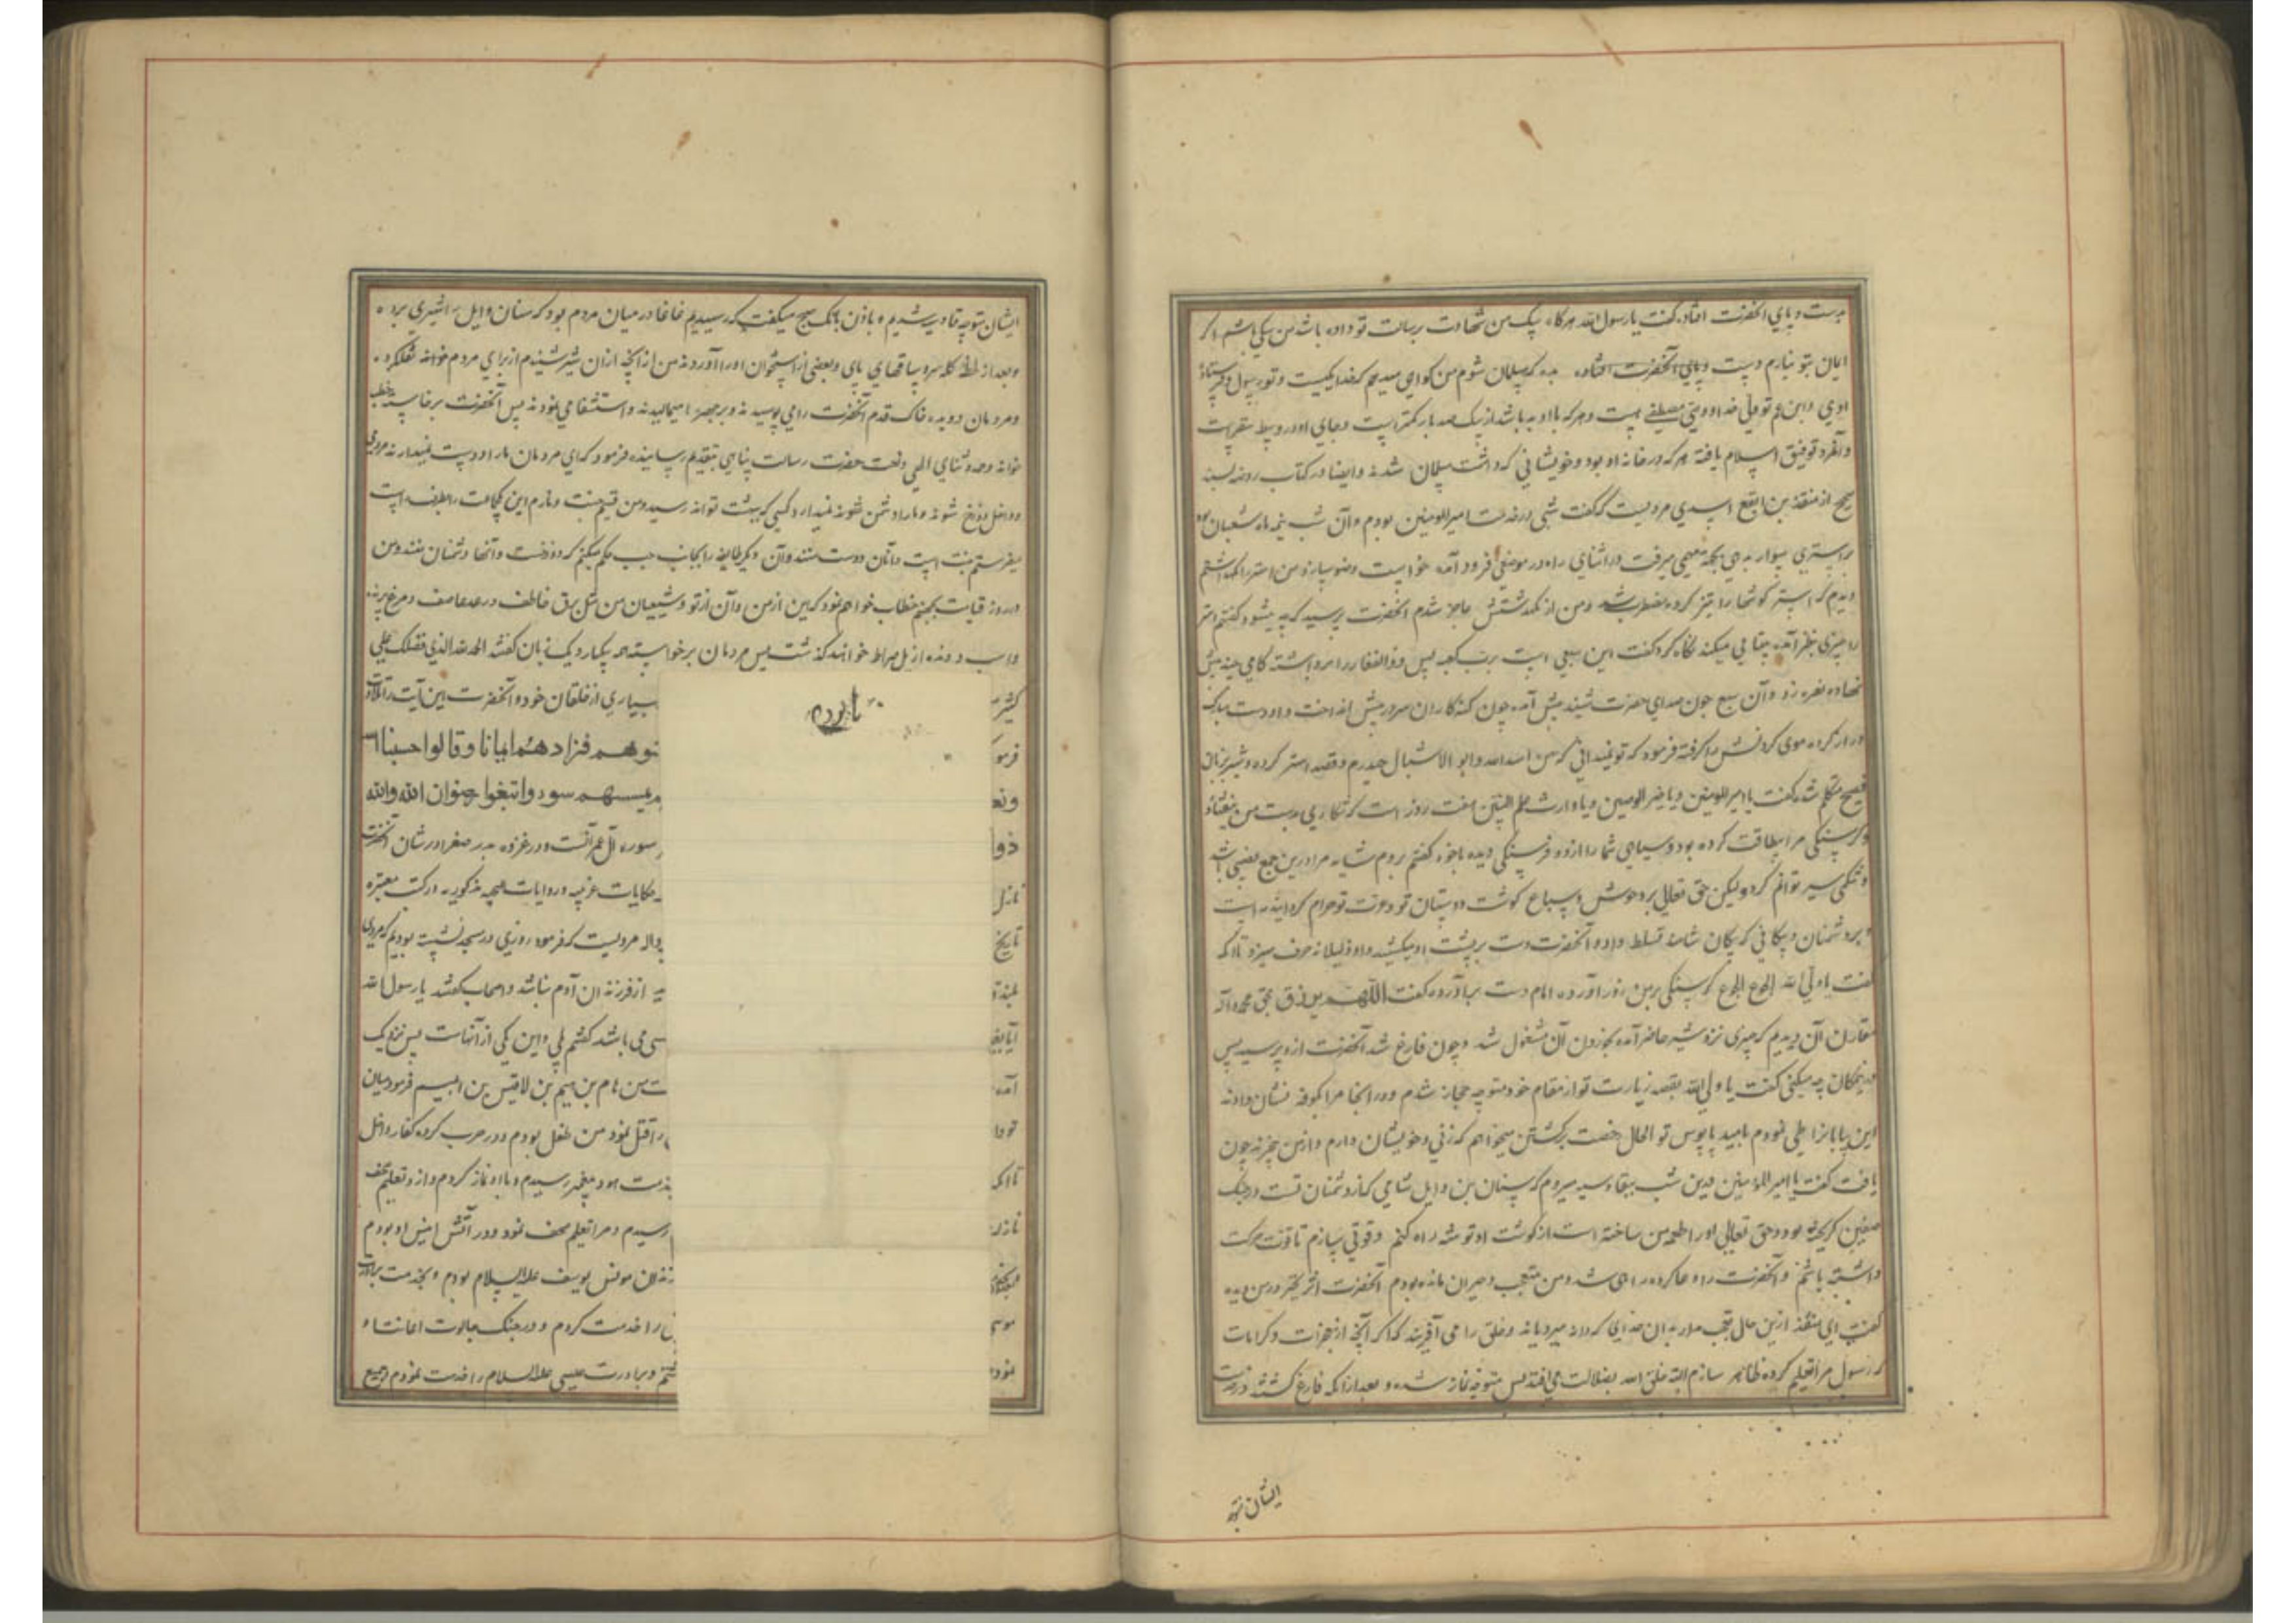 بدست و پای آنحضرت افتاد گفت یا رسول الله هرگاه یک من شهادت برسالت تو داده باشد من یکی باشم اگر
ایمان بتو نیارم دست و پای آنحضرت افتاده که مسلمان شوم من گواهی میدهم که خدا یکیست و تو رسول و فرستاده
اوی و ابن عم تو ولی خدا و وصی مصطفی است و هر که با او بد باشد از یک صد بار کمتر است و جای او در وسط سقر است
و آنمرد توفیق اسلام یافته هر که در خانه او بود و خویشانی که داشت مسلمان شدند و ایضا در کتاب روضه بسند
صحیح از منقذ بن ابقع اسدی مرویست که گفت شبی در خدمت امیرالمومنین بودم و آن شب نیمه ماه شعبان بود
بر استری سوار بجهة مهمی میرفت در اثنای راه در موضعی فرود آمد خواست وضو سازد من استر را نگه داشتم
دیدم که استر گوشها را تیز کرده مضطرب شد و من از نگه داشتنش عاجز شدم آنحضرت پرسید که چه میشود گفتم استر
را چیزی بنظر آمده نگاه کرد گفت این سبعی است برب کعبه پس ذوالفقار را برداشته گامی چند پیش
نهاده نعره زد و آن سبع چون صدای حضرت شنید پیش آمد چون گنه کاران سر در پیش انداخت و او دست مبارک
دراز کرده موی گردنش را گرفته فرمود که تو نمیدانی که من اسدالله و ابو الاشبال حیدرم و قصد استر کرده و شیر بزبان
فصیح متکلم شد گفت یا امیرالمومنین و یا خیر الوصیین و یا وارث علم النبیین هفت روز است که شکاری بدست من نیفتاده
و گرسنگی مرا بیطاقت کرده بود و سیاهی شما را از دو فرسنگی دیده با خود گفتم بروم شاید مرا درین جمع نصیبی باشد
و شکمی سیر توانم کرد و لیکن حق تعالی بر وحوش و سباع گوشت دوستان تو و عترت تو حرام گردانیده است
و بر دشمنان تسلط داده آنحضرت دست بر پشت او میکشید و او ذلیلانه حرف میزد تا آنکه
گفت یا ولی الله الجوع الجوع گرسنگی بر من زور آورده امام دست برآورده گفت اللهم بحق محمد و آله
مقارن آن دیدم که چیزی نزد شیر حاضر آمده بخوردن آن مشغول شد و چون فارغ شد آنحضرت ازو پرسید پس
چه میکنی گفت یا ولی الله بقصد زیارت تو از مقام خود متوجه حجاز شدم و در آنجا مرا بکوفه نشان دادند
این بیابانرا طی نمودم بامید پابوس تو الحال رخصت برگشتن میخواهم که زنی و خویشان دارم و از من چون
یافت گفت یا امیرالمومنین من شب بقادسیه میروم که سنان بن وایل شامی که از دشمنان تست در جنگ
صفین گریخته بود و حق تعالی او را طعمه من ساخته است از گوشت او توشه راه کنم و قوتی سازم تا قوت حرکت
داشته باشم و آنحضرت را دعا کرده راهی شد و من متعجب و حیران مانده بودم آنحضرت اثر تحیر در من دیده
گفت ای منقذ ازین حال عجب مدار بدان خدای که دانه میرویاند و خلق را می آفریند که اگر آنچه از معجزات و کرامات
که رسول مرا تعلیم کرده ظاهر سازم البته خلق الله بضلالت می افتد پس متوجه نماز شده و بعد از آنکه فارغ گشتند در خدمت
ایشان متوجه
ایشان متوجه قادسیه شدیم و مؤذن بانک صبح میگفت که رسیدیم غاغا در میان مردم بود که سنان وایل را شیری برده
و بعد از لحظه کله سر و ساقهای پای و بعضی از استخوان او را آوردند من آنچه از آن شیر شنیدم از برای مردم خوانده نقل کرده
و مردمان دویده خاک قدم آنحضرت را می بوسیدند و بر چهره میمالیدند و استشفا می نمودند پس آنحضرت برخاسته خطبه
خوانده و حمد و ثنای الهی و نعت حضرت رسالت پناهی بتقدیم رسانیده فرمود که ای مردمان ما را دوست نمیدارند مردمی
و داخل دوزخ شوند و ما را دشمن نمیدارد کسی که ببهشت تواند رسید و من قسیم جنت و نارم این جماعت را بطرف راست
میفرستم جنت است و آنان دوست منند و آن دیگر طایفه را بجانب چپ حکم میکنم که دوزخست و آنها دشمنان منند و من
در روز قیامت بجهنم خطاب خواهم نمود که این از من و آن از تو و شیعیان من مثل برق خاطف و رعد عاصف و مرغ پرنده
و اسب دونده از پل صراط خواهند گذشت پس مردمان برخواسته بیکبار و یک زبان گفتند الحمد لله الذی فضلک علی
کثیر بسیاری از خلقان خود و آنحضرت این آیت را تلاوت
فرمو نوهم فزادهم ایمانا و قالوا حسبنا الله
ونعم یمسسهم سوء واتبعوا رضوان الله والله
ذوا سوره آل عمرانست و در غزوه بدر صغرا در شان آنحضرت
نازل حکایات غریبه و روایات صحیحه مذکوره در کتب معتبره
تاریخ مرویست که فرمود روزی در مسجد نشسته بودیم که مردی
بلند از فرزندان آدم نباشد و اصحاب گفتند یا رسول الله
آیا بغیر کسی می باشد گفتم بلی و این یکی از آنهاست پس نزدیک
آمد من هام بن هیم بن لاقیس بن ابلیس فرمود میان
تو و را قتل نمود من طفل بودم و در حرب گروه کفار داخل
تا آنکه بخدمت هود پیغمبر رسیدم و با او نماز کردم و ازو تعلیم صحف
نازل رسیدم و مرا تعلیم صحف نمود و در آتش انیس او بودم
زندان مونس یوسف علیه السلام بودم و بخدمت برادرت
موسی را خدمت کردم و در جنگ جالوت
نمود و برادرت عیسی علیه السلام را خدمت نمودم و جمیع